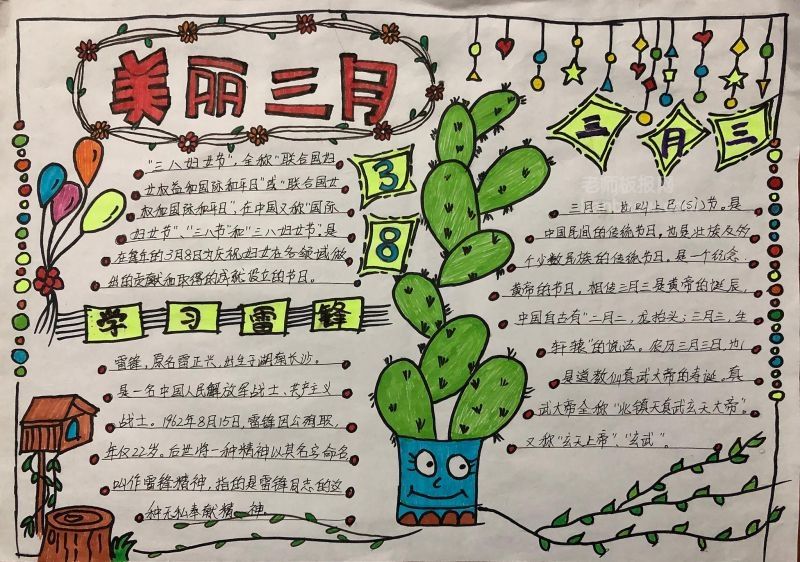 美丽三月
"三八妇女节",全称"联合国妇
女权益和国际和平日"或"联合国女
权和国际和平日",在中国又称"国际
妇女节"、"三八节"和"三八妇女节"。是
在每年的3月8日为庆祝妇女在各领域做
出的贡献和取得的成就设立的节日。
3
8
学习雷锋
雷锋,原名雷正兴,出生于湖南长沙。
是一名中国人民解放军战士,共产主义
战士。1962年8月15日,雷锋因公殉职,
年仅22岁。后世将一种精神以其名字命名
叫作雷锋精神,指的是雷锋同志的这
种无私奉献精神。
三月三
三月三,也叫上巳(sì)节。是
中国民间的传统节日,也是壮族及多
个少数民族的传统节日,是一个纪念
黄帝的节日。相传三月三是黄帝的诞辰,
中国自古有"二月二,龙抬头;三月三,生
轩辕"的说法。农历三月三日,也
是道教仙真武大帝的寿诞。真
武大帝全称"北镇天真武玄天大帝"。
又称"玄天上帝"、"玄武"。